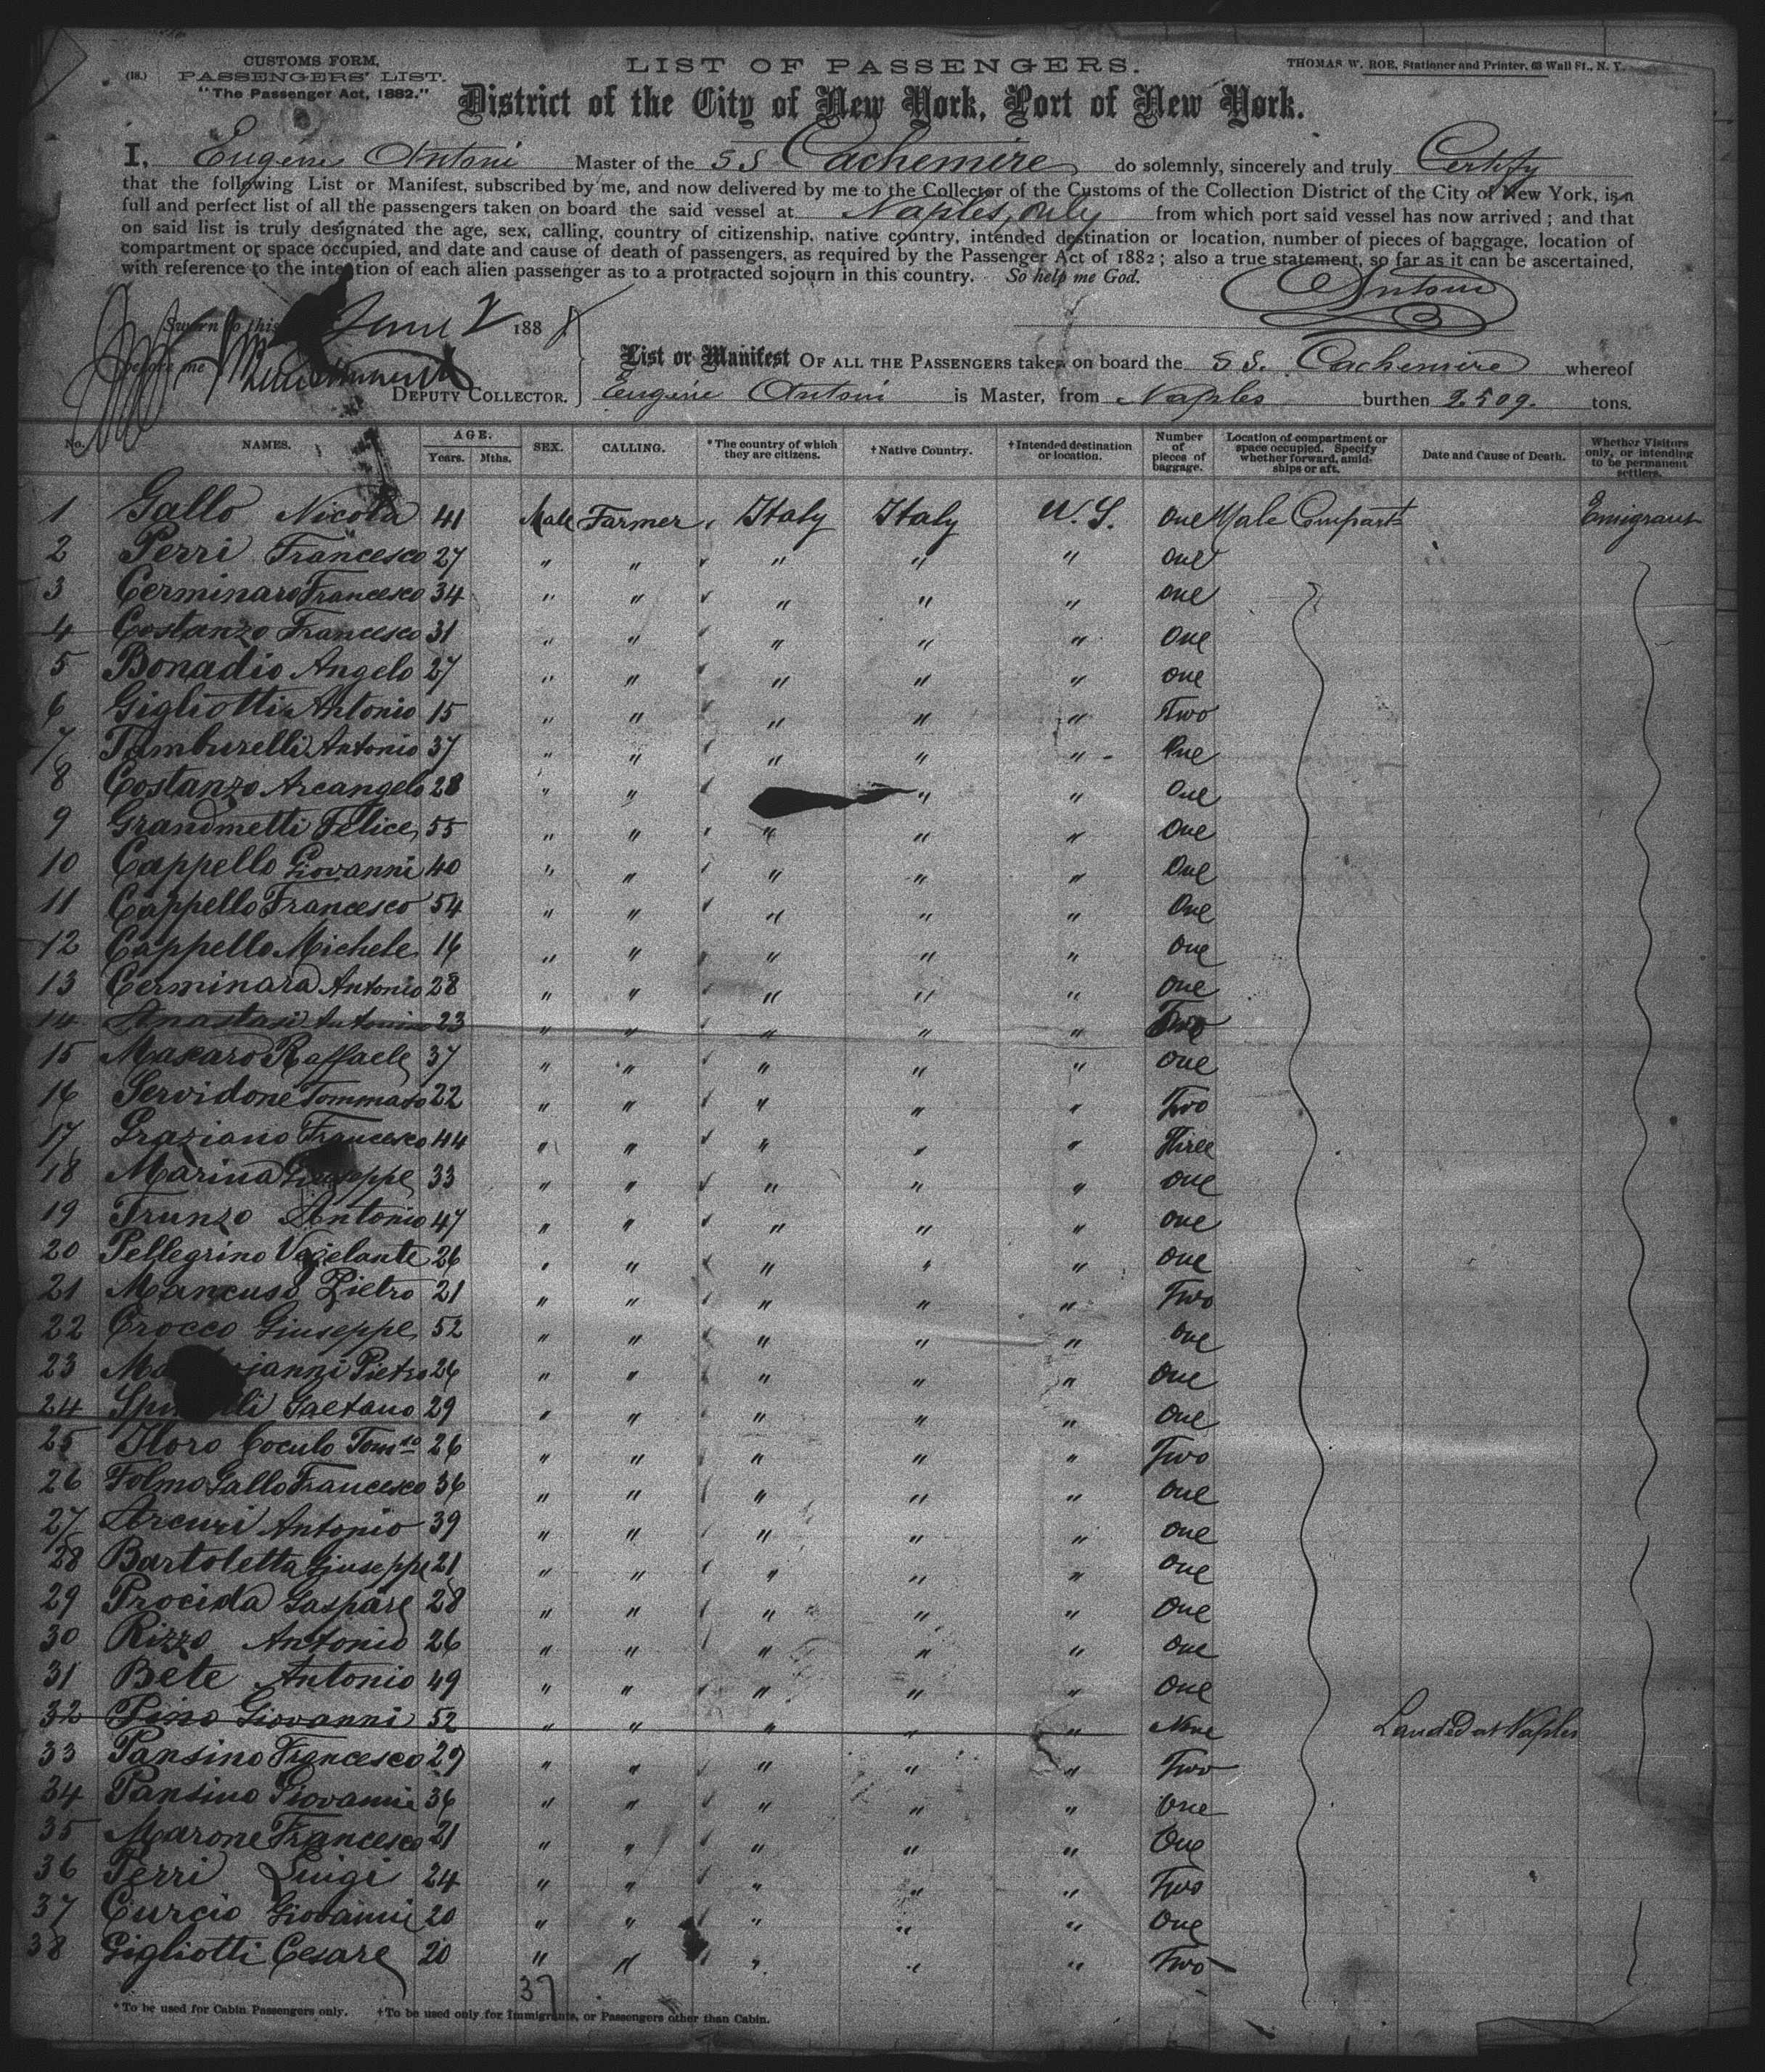 (18.)
CUSTOMS FORM,
PASSENGERS' LIST.
"The Passenger Act, 1882."
LIST OF PASSENGERS.
THOMAS W. ROE, Stationer and Printer, 63 Wall St., N. Y.
District of the City of New York, Port of New York.
I, Eugène Antoni Master of the SS Cachemire do solemnly, sincerely and truly Certify
that the following List or Manifest, subscribed by me, and now delivered by me to the Collector of the Customs of the Collection District of the City of New York, is a
full and perfect list of all the passengers taken on board the said vessel at Naples, only from which port said vessel has now arrived; and that
on said list is truly designated the age, sex, calling, country of citizenship, native country, intended destination or location, number of pieces of baggage, location of
compartment or space occupied, and date and cause of death of passengers, as required by the Passenger Act of 1882; also a true statement, so far as it can be ascertained,
with reference to the intention of each alien passenger as to a protracted sojourn in this country. So help me God.
Antoni
Sworn to this June 2 188
before me
DEPUTY COLLECTOR.
List or Manifest OF ALL THE PASSENGERS taken on board the SS. Cachemire whereof
Eugène Antoni is Master, from Naples burthen 2509. tons.
No. NAMES. AGE. Years. Mths. SEX. CALLING. *The country of which they are citizens. †Native Country. †Intended destination or location. Number of pieces of baggage. Location of compartment or space occupied. Specify whether forward, amidships or aft. Date and Cause of Death. Whether Visitors only, or intending to be permanent settlers.
1 Gallo Nicola 41 Male Farmer Italy Italy U.S. One Male Compart Emigrant
2 Perri Francesco 27 " " " " " One
3 Cerminaro Francesco 34 " " " " " One
4 Costanzo Francesco 31 " " " " " One
5 Bonadio Angelo 27 " " " " " One
6 Gigliotti Antonio 15 " " " " " Two
7 Tamburelli Antonio 37 " " " " " One
8 Costanzo Arcangelo 28 " " " " One
9 Grandinetti Felice 55 " " " " " One
10 Cappello Giovanni 40 " " " " " One
11 Cappello Francesco 54 " " " " " One
12 Cappello Michele 16 " " " " " One
13 Cerminara Antonio 28 " " " " " One
14 Anastasi Antonino 23 " " " " " Two
15 Mascaro Raffaele 37 " " " " " One
16 Servidone Tommaso 22 " " " " " Two
17 Graziano Francesco 44 " " " " " Three
18 Marina Giuseppe 33 " " " " " One
19 Trunzo Antonio 47 " " " " " One
20 Pellegrino Vegelante 26 " " " " " One
21 Mancuso Pietro 21 " " " " " Two
22 Crocco Giuseppe 52 " " " " " One
23 Pietro 26 " " " " " One
24 Gaetano 29 " " " " " One
25 Floro Coculo Tomso 26 " " " " " Two
26 Folmo Gallo Francesco 36 " " " " " One
27 Arcuri Antonio 39 " " " " " One
28 Bartoletta Giuseppe 21 " " " " " One
29 Procida Gaspare 28 " " " " " One
30 Rizzo Antonio 26 " " " " " One
31 Bete Antonio 49 " " " " " One
32 Pino Giovanni 52 " " " " " None Landed at Naples
33 Pansino Francesco 29 " " " " " Two
34 Pansino Giovanni 36 " " " " " One
35 Marone Francesco 21 " " " " " One
36 Perri Luigi 24 " " " " " Two
37 Curcio Giovanni 20 " " " " " One
38 Gigliotti Cesare 20 " " " " " Two
37
*To be used for Cabin Passengers only. †To be used only for Immigrants, or Passengers other than Cabin.